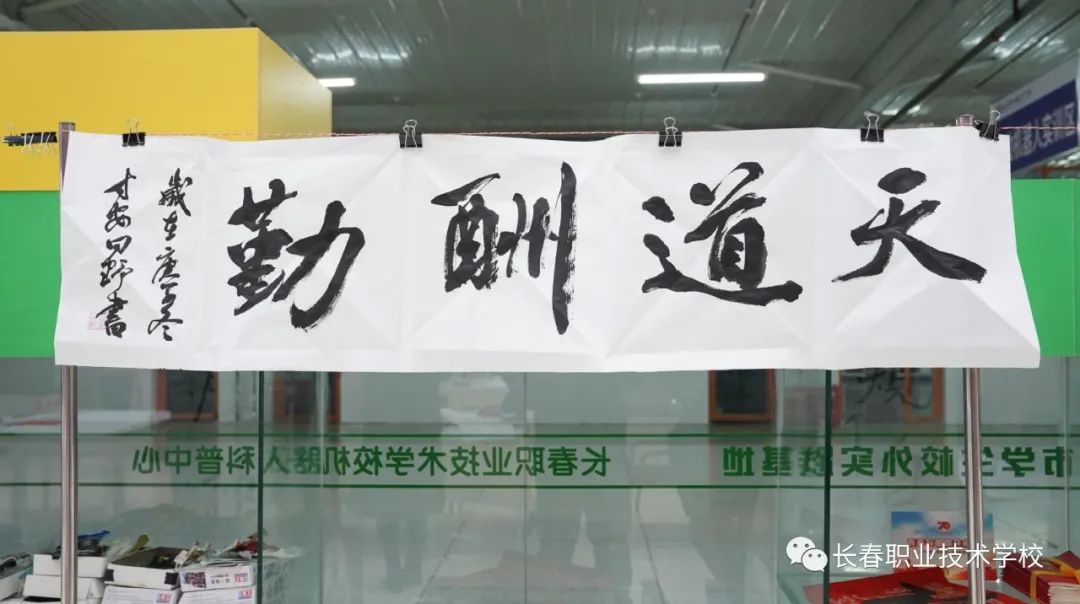 天道酬勤
歲在庚子冬
田野書
市学生校外实践基地
长春职业技术学校机器人科普中心
长春职业技术学校